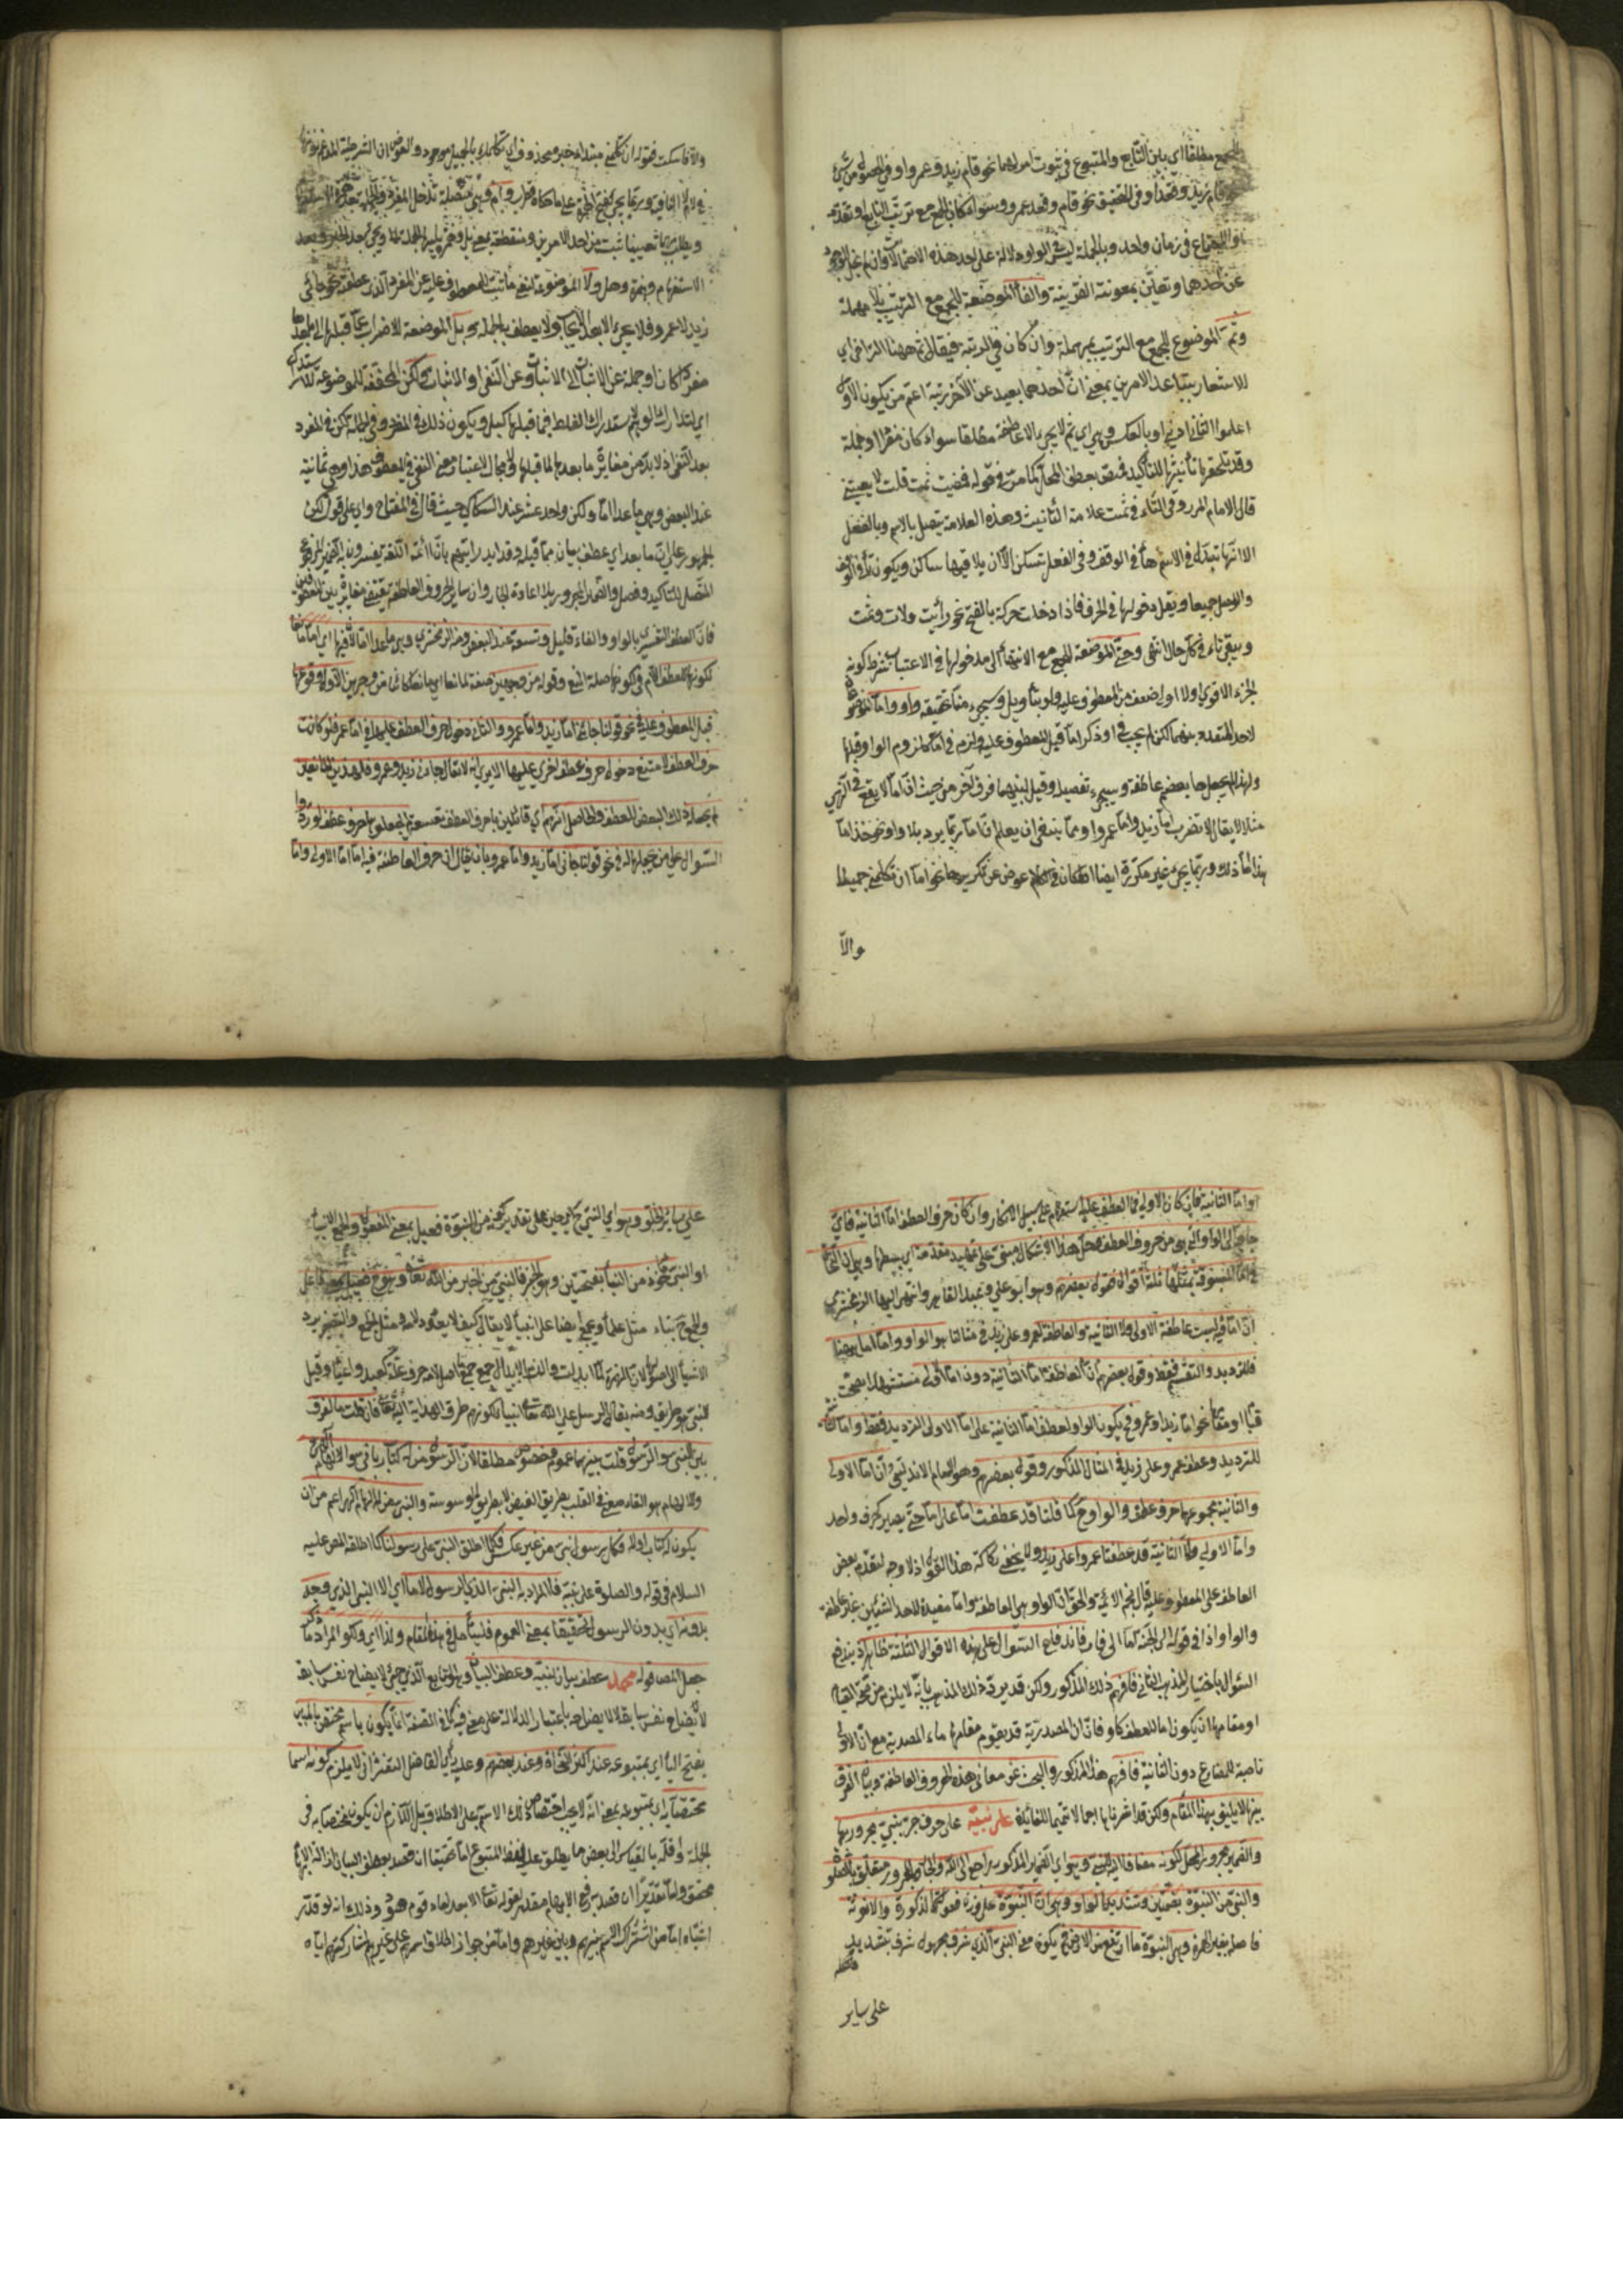 للجمع مطلقا اي بين التابع والمتبوع في ثبوت امر لهما نحو قام زيد وعمرو او في حصول
قام زيد وقعد او في التحقيق نحو قام وقعد عمرو وسواء كان الجمع مع ترتب التابع او تقدمه
او الاجتماع في زمان واحد وبالجملة ليس في الواو دلالة على احد هذه الاحتمالات وان لم يخل الوجود
عن احدهما وتعين بمعونة القرينة والفاء الموضوعة للجمع مع الترتيب بلا مهملة
وثم الموضوع للجمع مع الترتيب بمهملة وان كان في الرتبة فيقال ثم ههنا للتراخي اي
للاستعار بتباعد الامرين بمعنى ان احدهما بعيد عن الآخر رتبة اعم من يكون الاول
اعلى والثاني ادنى او بالعكس وهي اي ثم لا يجئ الا عاطفة مطلقا سواء كان مفردا او جملة
وقد تلحقها تأنيثها للتأكيد فتختص بعطف الجمل كما مر في قوله فمضيت ثمت قلت لا يعنيني
قال الامام المرزوقي التاء في ثمت علامة التأنيث وهذه العلامة يتصل بالاسم وبالفعل
الا انها تبدل في الاسم هاء في الوقف وفي الفعل تسكن الا ان يلاقيها ساكن ويكون تاء في الوقف
والوصل جميعا ويقل دخولها في الحرف فاذا دخلت حركة بالفتح نحو رأيت ولات وثمت
ويبقى تاء في كل حال انتهى وحتى الموضوعة للجمع مع الانتهاء الى مدخولها في الاعتبار بشرط كونه
لجزء الاقوى اولا او اضعف من المعطوف عليه ولو بتأويل وسيجيء منا تحقيقه واو واما الموضوعة
لاحد المتعدد بينهما لكن لم يجب في او ذكر اما قبل المعطوف عليه ولزم في اما كلزوم الواو قبلها
ولهذا لم يجعلها بعضهم عاطفة وسيجيء تفصيله وقيل لبينهما فرق آخر من حيث ان اما لا يقع في النهي
مثلا لا يقال لا تضرب اما زيدا واما عمروا ومما ينبغي ان يعلم ان اما ربما يرد بلا واو نحو خذ اما
هذا اما ذلك وربما يجيء غير مكررة ايضا اذا كان في الكلام عوض عن تكريرها نحو اما ان تكلمني جميلا
والا
والا فاسكت فقوله ان تكلمني مبتداء خبره محذوف اي تكلمك بالجميل موجود والعوض ان الشرطية المدغم نونها
في لام لا النافية وربما يجيء بفتح الهمزة على ما حكاه قطرب وام وهي متصلة تدخل المفرد والجملة بعد همزة الاستفهام
ويطلب بها تعيين ما ثبت من احد الامرين ومنقطعة بمعنى بل وهمزة يليها الجملة لا ويجيء بعد الخبر وبعد
الاستفهام وهمزة وهل ولا الموضوعة لنفي ما ثبت للمعطوف عليه عن المفرد الذي عطفته نحو جاءني
زيد لا عمرو فلا يجيء الا بعد الايجاب ولا يعطف بها جملة وبل الموضوعة للاضراب عما قبلها الى ما بعدها
مفردا كان او جملة عن الاثبات الى الاثبات وعن النفي او الاثبات ولكن المخففة الموضوعة للاستدراك
اي لتدارك الوهم يستدرك الغلط فيما قبلها كبل ويكون ذلك في المفرد وفي الجملة لكن في المفرد
بعد النفي اذ لا بد من مغايرة ما بعدها لما قبلها ولا مجال لاعتبار معنى النفي في المعطوف هذا وهي ثمانية
عند البعض وهي ما عدا اما ولكن واحد عشر عند السكاكي حيث قال في المفتاح واي على قول لكن
الجمهور على ان ما بعد اي عطف بيان مما قبله وقد ايد رأيهم بان ائمة اللغة يفسرون به الضمير المرفوع
المتصل بلا تأكيد وفصل والضمير المجرور بلا اعادة الجار وان ساير الحروف العاطفة يقتضي مغايرة بين المعطوفين
فان العطف التفسيري بالواو والفاء قليل وتسعة عند البعض ومنه الزمخشري وهي ما عدا اما لا فيها اي اما مانعا
لكونها للعطف لام في كونها صلة المنع وقوله من وجهين صفة لمانعا اي مانعا كائنا من وجهين الاول وقوعها
قبل المعطوف عليه في نحو قولنا جاءني اما زيد واما عمرو والثاني دخول حرف العطف عليها في اما عمرو فلو كانت
حرف العطف لامتنع دخول حرف عطف اخرى عليها الا يرى انه لا يقال جاءني زيد وعمرو فلهذين المانعين
لم يجعله ذلك البعض للعطف والحاصل انهم اي قائلين بان حروف العطف تسعة لم يجعلوها حرف عطف لورود
السؤال على من جعلها له في نحو قولنا جاءني اما زيد واما عمرو بان يقال اي حرف العاطفة فيه اما الاولى واما
واما الثانية فان كان الاولى فما العطف عليه استفهام على سبيل الانكار وان كان حرف العطف اما الثانية فاي
حاجة الى الواو التي هي من حروف العطف وحل هذا الاشكال مبني على تمهيد مقدمة اي بسطها وهي ان للنحاة
في اما المسبوقة بمثلها ثلثة اقوال فقول بعضهم وهو ابو علي وعبد القاهر وانتهى اليها الزمخشري
ان اما ليست عاطفة الاولى ولا الثانية والعاطفة لعمرو على زيد في مثالنا هو الواو واما اما ههنا
فللترديد والتقسيم فقط وقول بعضهم ان العاطفة اما الثانية دون اما الاولى مستشهدا بصحة
قيام او مقام نحو اما زيد او عمرو فح يكون الواو لعطف اما الثانية على اما الاولى للترديد فقط واما
للترديد وعطف عمرو على زيد في المثال المذكور وقول بعضهم وهو الامام الاندلسي ان اما الاولى
والثانية بمجموعها حرف عطف والواو ح كما قلنا قد عطفت اما على اما حتى يصير كحرف واحد
واما الاولى واما الثانية قد عطفتا عمروا على زيد ولا يخفى ركاكة هذا القول اذ لا وجه لتقدم بعض
العاطف على المعطوف عليه قال نجم الائمة والحق ان الواو هي العاطفة واما مفيدة لاحد الشيئين غير عاطفة
والواو اذا في قوله الى الجنة اما الى نار فاندفاع السؤال على هذه الاقوال الثلثة ظاهر اذ يندفع
السؤال باختيار المذهب الثاني فافهم ذلك المذكور ولكن قد يرد ذلك المذهب بانه لا يلزم من صحة القيام
او مقامها ان يكون اما للعطف كاو فان ان المصدرية قد يقوم مقامها ماء المصدرية مع ان الاولى
ناصبة للمضارع دون الثانية فافهم هذا المذكور والبحث عن معاني هذه الحروف العاطفة وبيان الفرق
بينها لا يليق بهذا المقام ولكن قد اشرنا بها اجمالا تتميما للفائدة على نبيه على حرف جر نبي مجرور بها
والضمير مجرور المحل لكونه مضافا اليه لنبي وهو اي الضمير المذكور راجع الى الله والجار والمجرور متعلق بالصلوة
والنبي من النبوة بفتحتين وتشديد الواو وهي ان النبوة على وزن فعولة مذكورة والانوثة
فاصله بغير الهمزة وهي النبوة ما ارتفع من الارض فح يكون معنى النبي الذي شرف بمجهول شرف بتشديد
على ساير
على ساير الخلق وهو اي النبي ح اي حين على تقدير كونه من النبوة فعيل بمعنى المفعول والجمع انبياء
او النبي مأخوذ من النبأ بفتحتين وهو الخبر فالنبي من اخبر من الله تعالى وهو ح فعيل بمعنى فاعل
والجمع نباء مثل علماء ويجيء ايضا على انبياء لا يقال كيف لا يعود لامه مثل الجمع والتصغير يرد
الاشياء الى اصولها لان الهمزة لما ابدلت والتزم الابدال جمع جمع ما اصل لامه حرف علة كعيد واعياد وقيل
النبي هو طريق ومنه يقال للرسل على الله تعالى انبياء لكونهم طرق الهداية اليه تعالى فان قلت ما الفرق
بين النبي والرسول قلت بينهما عموم وخصوص مطلقا لان الرسول من له كتاب رباني سواء
والالهام هو القاء معنى في القلب بطريق الفيض لا بطريق الوسوسة والنبي من له الهام الهي اعم من ان
يكون له كتاب اولا فكل رسول نبي من غير عكس فلما اطلق النبي على رسولنا كما اطلقه المص عليه
السلام في قوله والصلوة على نبيه فالمراد به النبي الذي الرسول لا ما اي الا النبي الذي وجد
بدونه اي بدون الرسول تحقيقا بمعنى العموم فليتأمل في هذا المقام ولذا اي ولكون المراد ما ذكر
جعل المص قوله محمد عطف بيان لنبيه وعطف البيان هو التابع الذي جيء لايضاح نفس سابقه
لا يضاح نفس سابقه لا لايضاحه باعتبار الدلالة على معنى فيه كما في الصفة انما يكون باسم مختص بالمبين
بفتح الياء اي بمتبوعه عند اكثر النحاة وعند بعضهم وعليه رأي الفاضل التفتازاني لا يلزم كونه اسما
مختصا به اي بمتبوعه بمعنى انه لا يجب اختصاص ذلك الاسم على الاطلاق بل اللازم ان يكون مختصا به في
الجملة واقله بالقياس الى بعض ما يطلق عليه لفظ المتبوع اما تحقيقا ان قصد بعطف البيان ازالة الابهام
محقق واما تقديرا ان قصد به رفع الابهام مقدر نحو قوله تعالى الا بعدا لعاد قوم هود وذلك انه لو قدر
اشتباه اما من اشتراك الاسم بينهم وبين غيرهم واما من جواز اطلاق اسمهم على غيرهم لمشاركتهم اياه